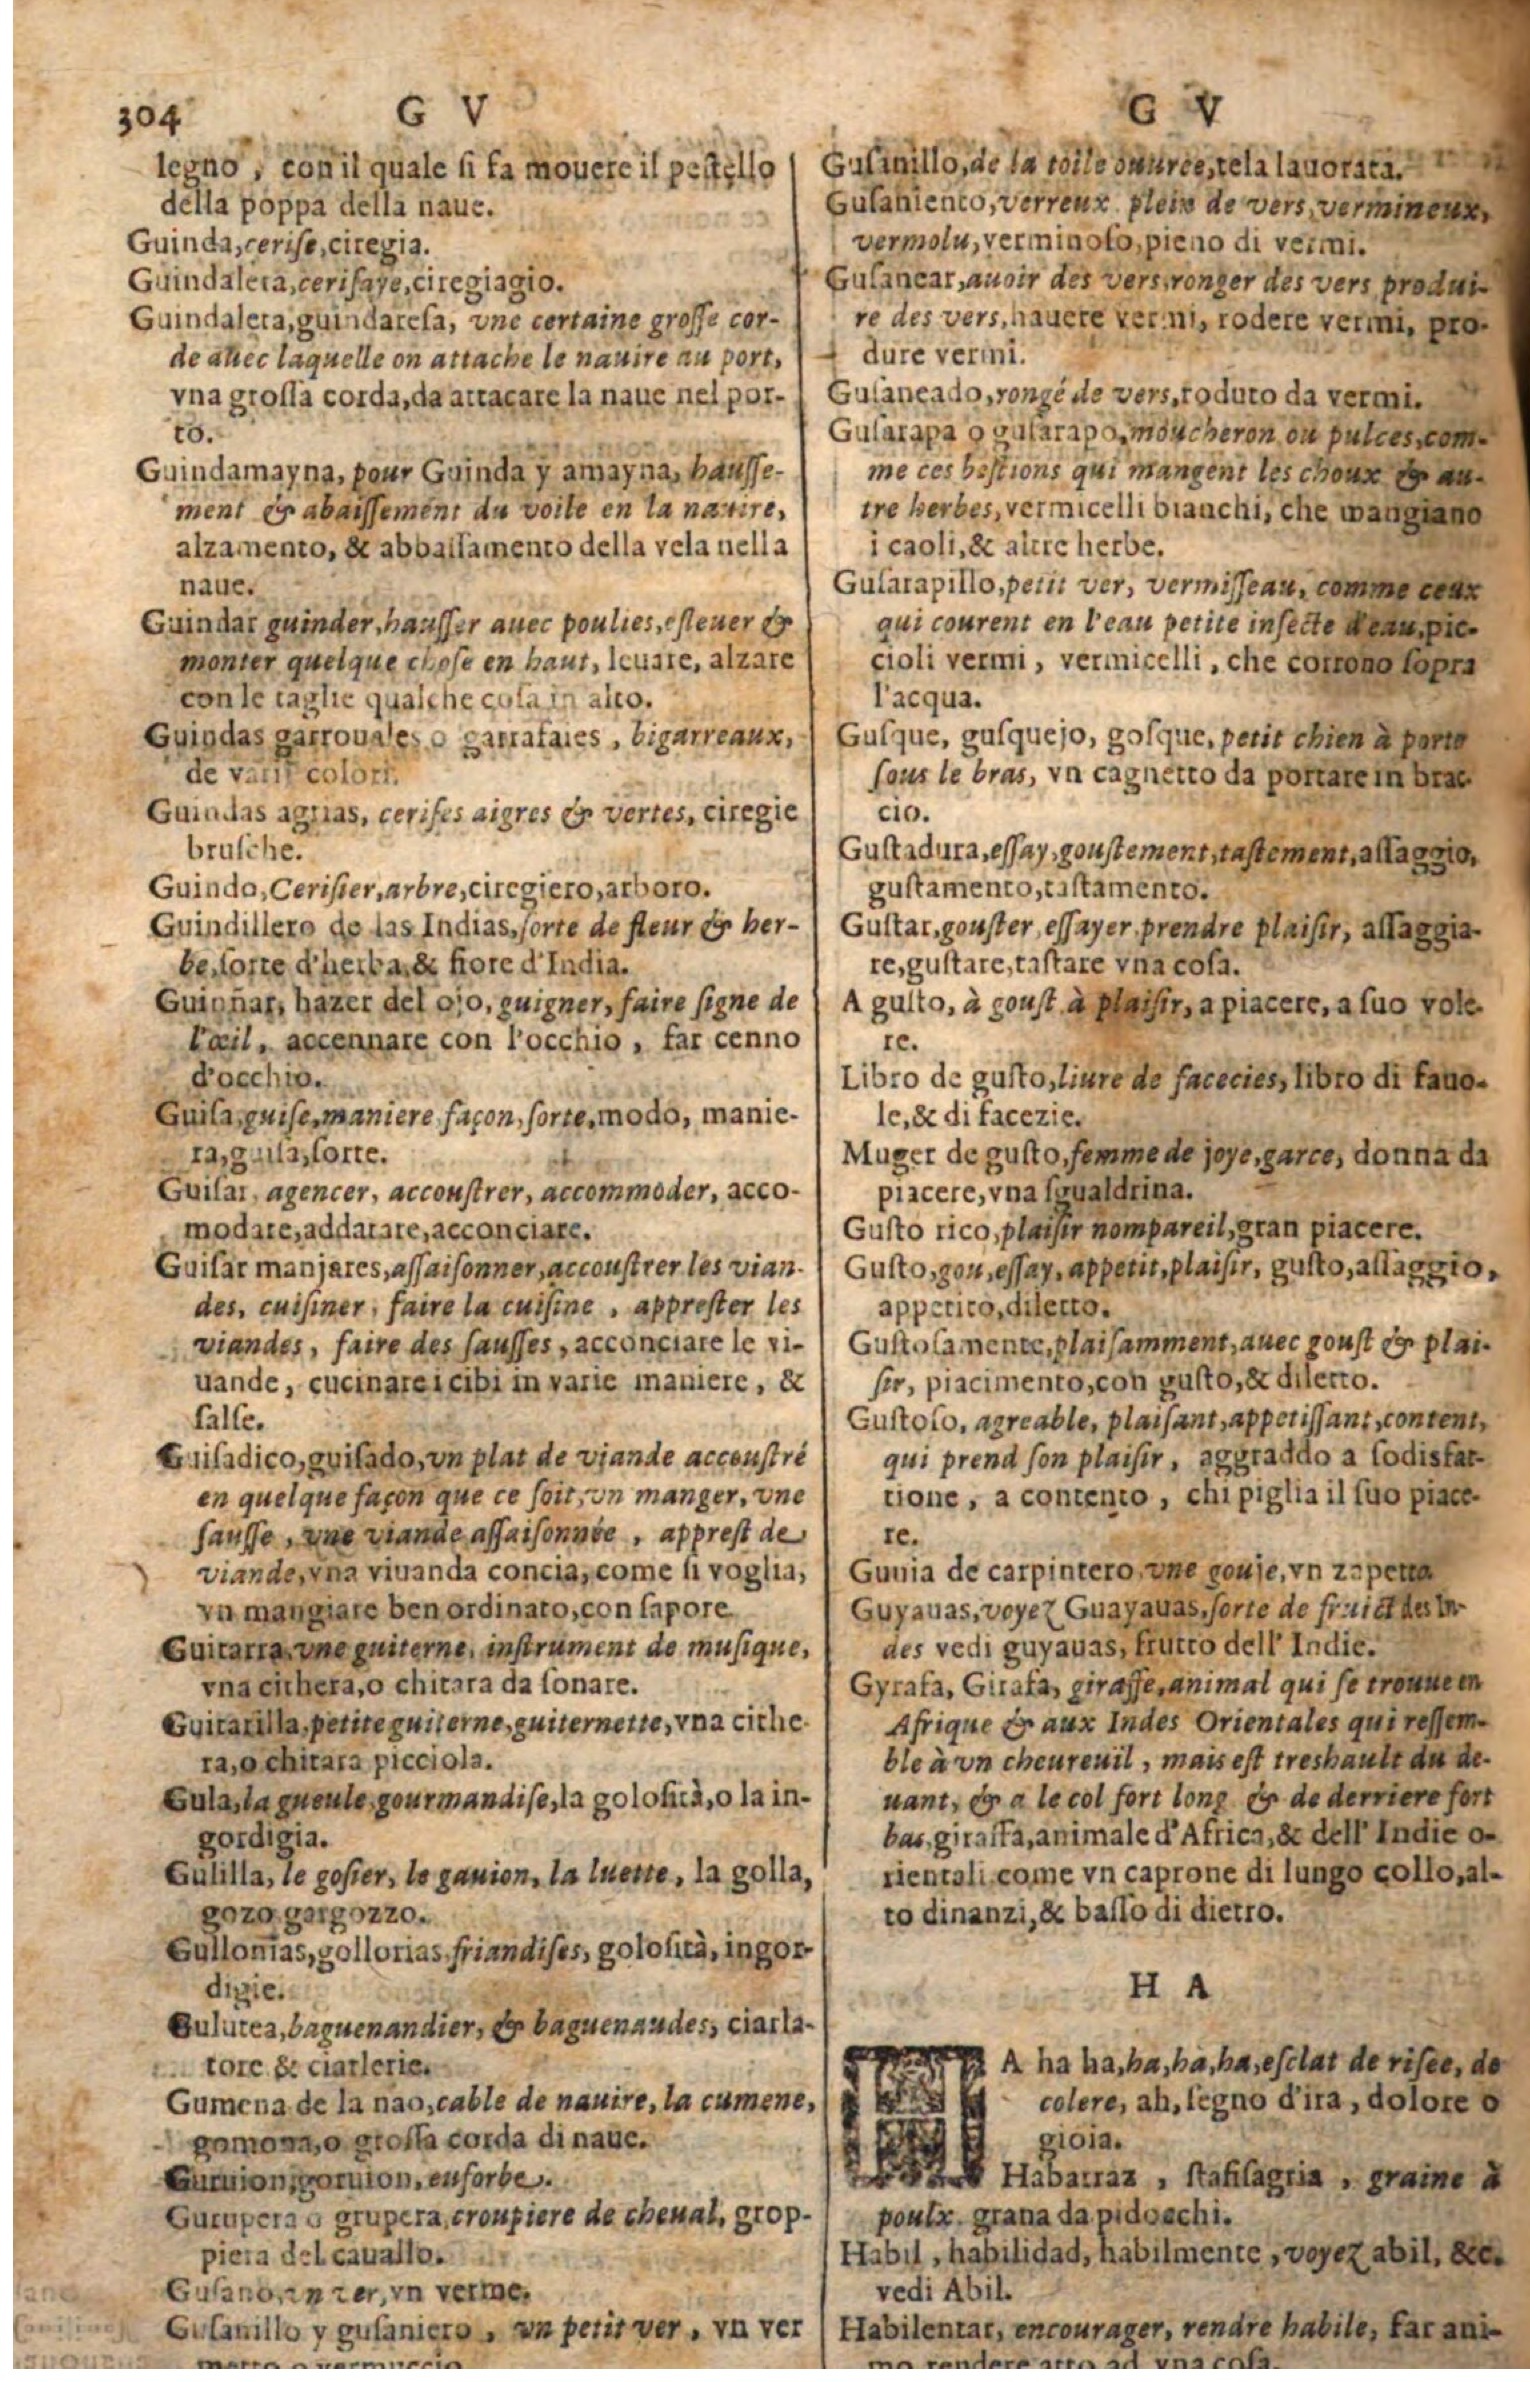 304
G V
legno, con il quale si fa mouere il pestello
della poppa della naue.
Guinda, cerise, ciregia.
Guindalera, cerisaye, ciregiagio.
Guindaleta, guindaresa, vne certaine grosse cor-
de auec laquelle on attache le nauire au port,
vna grossa corda, da attacare la naue nel por-
to.
Guindamayna, pour Guinda y amayna, hausse-
ment & abaissement du voile en la nauire,
alzamento, & abbassamento della vela nella
naue.
Guindar guinder, hausser auec poulies, esleuer &
monter quelque chose en haut, leuare, alzare
con le taglie qualche cosa in alto.
Guindas garrouales o garrafaies, bigarreaux,
de varij colori.
Guindas agrias, cerises aigres & vertes, ciregie
brusche.
Guindo, Cerisier, arbre, ciregiero, arboro.
Guindillero de las Indias, sorte de fleur & her-
be, sorte d'herba, & fiore d'India.
Guinñar, hazer del ojo, guigner, faire signe de
l'œil, accennare con l'occhio, far cenno
d'occhio.
Guisa, guise, maniere, façon, sorte, modo, manie-
ra, guisa, sorte.
Guisar, agencer, accoustrer, accommoder, acco-
modare, addatare, acconciare.
Guisar manjares, assaisonner, accoustrer les vian-
des, cuisiner, faire la cuisine, apprester les
viandes, faire des sausses, acconciare le vi-
uande, cucinare i cibi in varie maniere, &
salse.
Guisadico, guisado, vn plat de viande accoustré
en quelque façon que ce soit, vn manger, vne
sausse, vne viande assaisonnée, apprest de
viande, vna viuanda concia, come si voglia,
vn mangiare ben ordinato, con sapore
Guitarra, vne guiterne, instrument de musique,
vna cithera, o chitara da sonare.
Guitarilla, petite guiterne, guiternette, vna cithe-
ra, o chitara picciola.
Gula, la gueule, gourmandise, la golosità, o la in-
gordigia.
Gulilla, le gosier, le gauion, la luette, la golla,
gozo gargozzo.
Gullorias, gollorias friandises, golosità, ingor-
digie.
Gulutea, baguenandier, & baguenaudes, ciarla-
tore & ciarlerie.
Gumena de la nao, cable de nauire, la cumene,
gomona, o grossa corda di naue.
Guruion, goruion, euforbe.
Gurupera o grupera, croupiere de cheual, grop-
piera del cauallo.
Gusano, vn ver, vn verme.
Gusanillo y gusaniero, vn petit ver, vn ver
metto o vermuccio
G V
Gusanillo, de la toile ouuree, tela lauorata.
Gusaniento, verreux plein de vers, vermineux,
vermolu, verminoso, pieno di vermi.
Gusanear, auoir des vers, ronger des vers produi-
re des vers, hauere vermi, rodere vermi, pro-
dure vermi.
Gusaneado, rongé de vers, roduto da vermi.
Gusarapa o gusarapo, moucheron ou pulces, com-
me ces bestions qui mangent les choux & au-
tre herbes, vermicelli bianchi, che mangiano
i caoli, & altre herbe.
Gusarapillo, petit ver, vermisseau, comme ceux
qui courent en l'eau petite insecte d'eau, pic-
cioli vermi, vermicelli, che corrono sopra
l'acqua.
Gusque, gusquejo, gosque, petit chien à porte
sous le bras, vn cagnetto da portare in brac-
cio.
Gustadura, essay, goustement, tastement, assaggio,
gustamento, tastamento.
Gustar, gouster, essayer, prendre plaisir, assaggia-
re, gustare, tastare vna cosa.
A gusto, à goust à plaisir, a piacere, a suo vole-
re.
Libro de gusto, liure de facecies, libro di fauo-
le, & di facezie.
Muger de gusto, femme de joye, garce, donna da
piacere, vna sgualdrina.
Gusto rico, plaisir nompareil, gran piacere.
Gusto, gou, essay, appetit, plaisir, gusto, assaggio,
appetito, diletto.
Gustosamente, plaisamment, auec goust & plai-
sir, piacimento, con gusto, & diletto.
Gustoso, agreable, plaisant, appetissant, content,
qui prend son plaisir, aggraddo a sodisfat-
tione, a contento, chi piglia il suo piace-
re.
Guuia de carpintero, vne gouje, vn zapetta
Guyauas, voyez Guayauas, sorte de fruict des In-
des vedi guyauas, frutto dell' Indie.
Gyrafa, Girafa, giraffe, animal qui se trouue en
Afrique & aux Indes Orientales qui ressem-
ble à vn cheureuil, mais est treshault du de-
uant, & a le col fort long & de derriere fort
bas, giraffa, animale d'Africa, & dell' Indie o-
rientali come vn caprone di lungo collo, al-
to dinanzi, & basso di dietro.
H A
HA ha ha, ha, ha, ha, esclat de risee, de
colere, ah, segno d'ira, dolore o
gioia.
Habarraz, stafisagria, graine à
poulx grana da pidocchi.
Habil, habilidad, habilmente, voyez abil, &c.
vedi Abil.
Habilentar, encourager, rendre habile, far ani-
mo rendere atto ad vna cosa.